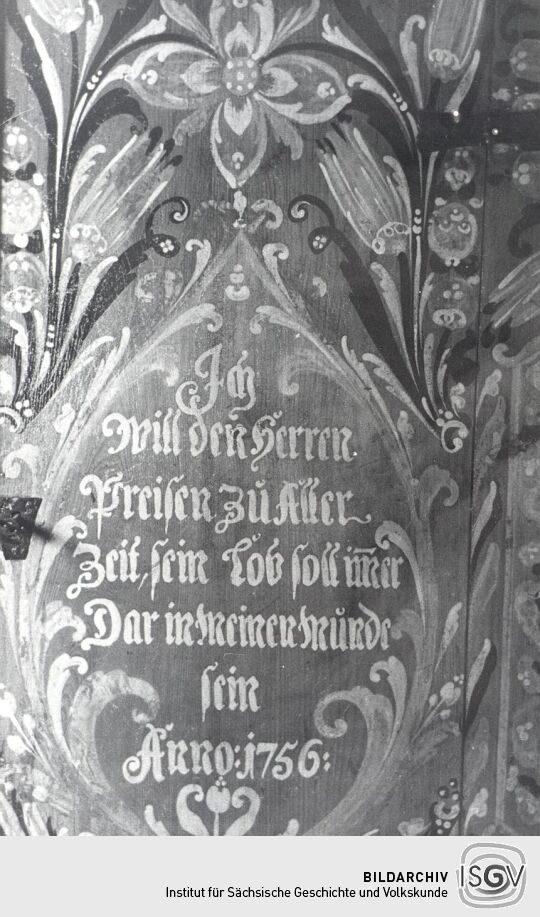 Ich
will den Herren
Preisen Zu Aller
Zeit, sein Lob soll im̅er
Dar in Meinen Munde
sein
Anno: 1756:
BILDARCHIV
Institut für Sächsische Geschichte und Volkskunde
ISGV